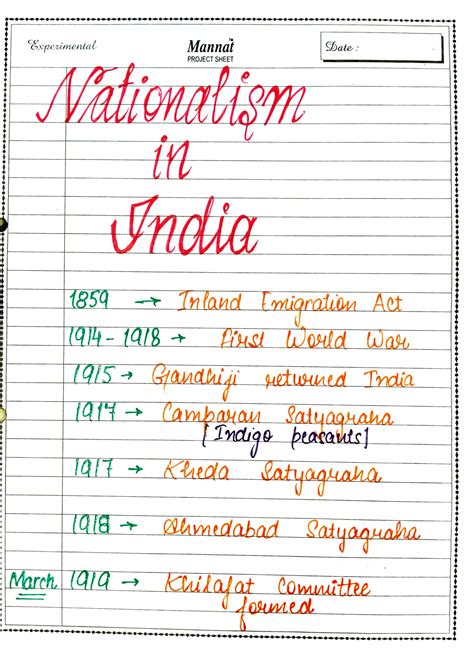 Experimental
Mannat™
PROJECT SHEET
Date :
Nationalism
in
India
1859 → Inland Emigration Act
1914 - 1918 → First World War
1915 → Gandhiji returned India
1917 → Camparan Satyagraha
[Indigo peasants]
1917 → Kheda Satyagraha
1918 → Ahmedabad Satyagraha
March 1919 → Khilafat Committee
formed